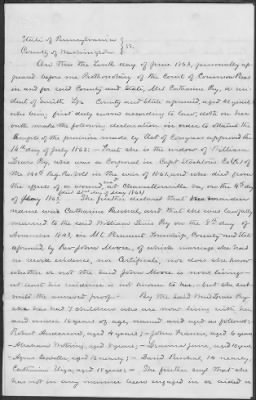 State of Pennsylvania }
County of Washington } SS.
On this the Tenth day of June 1863, personally ap
peared before me Prothonotary of the Court of Common Pleas
in and for said County and State, Mrs Catharine Fry, a resi
dent of Smith Tp. County and State aforesaid, aged 41 years
who being first duly sworn according to law, doth on her
oath make the following declaration in order to obtain the
benefit of the pension made by Act of Congress approved the
14th day of July 1862: That she is the widow of William
Lewis Fry, who was a Corporal in Capt
of the 140th Reg Pa Vols in the war of 1861, and who died from
the effects of a wound, at Chancellorsville Va. on the
day of May 1863. She further declared that her maiden
name was Catharine Purcel, and that she was lawfully
married to the said William Lewis Fry on the 8th day of
1843, at Mt Pleasant Township, County and State
aforesaid by Rev John Moore, of which marriage she has
no record evidence, nor Certificate, nor does she know
whether or not the said John Moore is now living
at least his residence is not known to her; but she sub
mits the annexed proof. By the said Wm Lewis Fry
she has had 7 children who are now living with her
and under 16 years of age, named and aged as follows:
Robert Anderson, aged 4 years; John Francis, 6 years
8 years; June, 10 years
12 years; David Purcel, 14 years,
Catharine Eliza, 15 years. She further says that she
has not in any manner been engaged in or aided in